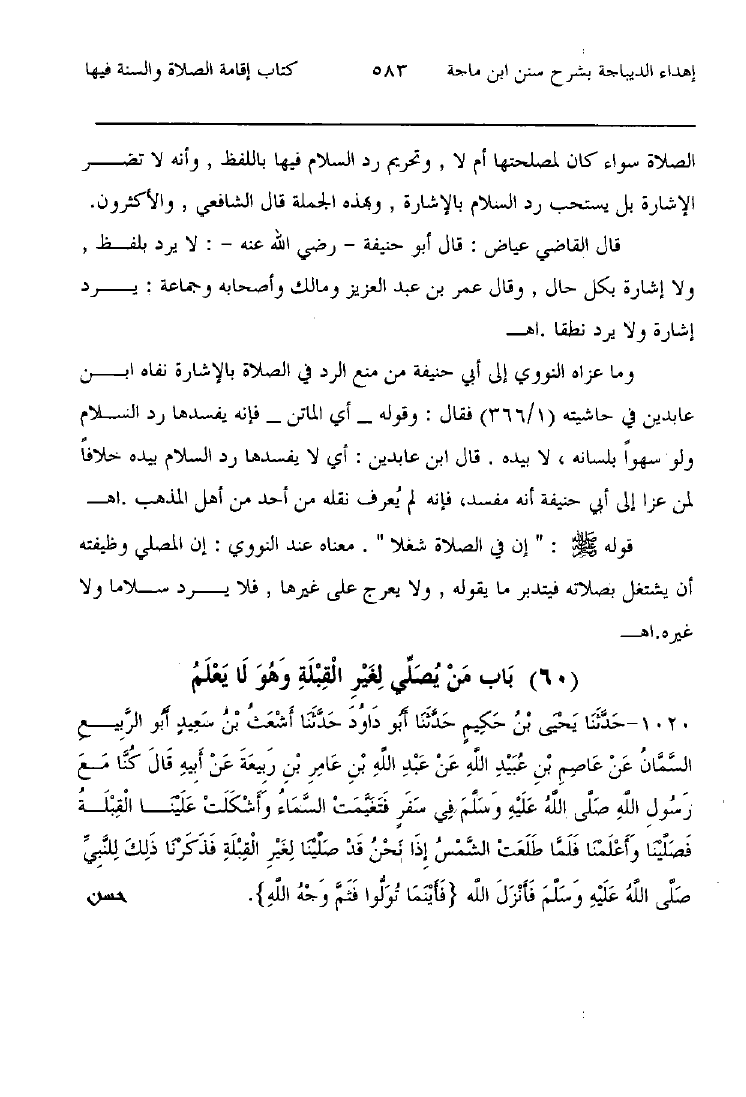 إهداء الديباجة بشرح سنن ابن ماجة ٥٨٣ كتاب إقامة الصلاة والسنة فيها
الصلاة سواء كان لمصلحتها أم لا , وتحريم رد السلام فيها باللفظ , وأنه لا تضـــر
الإشارة بل يستحب رد السلام بالإشارة , وبهذه الجملة قال الشافعي , والأكثرون.
قال القاضي عياض : قال أبو حنيفة – رضي الله عنه – : لا يرد بلفــظ ,
ولا إشارة بكل حال , وقال عمر بن عبد العزيز ومالك وأصحابه وجماعة : يـــرد
إشارة ولا يرد نطقا .اهــ
وما عزاه النووي إلى أبي حنيفة من منع الرد في الصلاة بالإشارة نفاه ابـــن
عابدين في حاشيته (٣٦٦/١) فقال : وقوله _ أي الماتن _ فإنه يفسدها رد الســلام
ولو سهواً بلسانه ، لا بيده . قال ابن عابدين : أي لا يفسدها رد السلام بيده خلافاً
لمن عزا إلى أبي حنيفة أنه مفسد، فإنه لم يُعرف نقله من أحد من أهل المذهب .اهــ
قوله ﷺ : " إن في الصلاة شغلا " . معناه عند النووي : إن المصلي وظيفته
أن يشتغل بصلاته فيتدبر ما يقوله , ولا يعرج على غيرها , فلا يـــرد ســلاما ولا
غيره.اهــ
(٦٠) بَاب مَنْ يُصَلِّي لِغَيْرِ الْقِبْلَةِ وَهُوَ لَا يَعْلَمُ
١٠٢٠–حَدَّثَنَا يَحْيَى بْنُ حَكِيمٍ حَدَّثَنَا أَبُو دَاوُدَ حَدَّثَنَا أَشْعَثُ بْنُ سَعِيدٍ أَبُو الرَّبِيــعِ
السَّمَّانُ عَنْ عَاصِمِ بْنِ عُبَيْدِ اللَّهِ عَنْ عَبْدِ اللَّهِ بْنِ عَامِرِ بْنِ رَبِيعَةَ عَنْ أَبِيهِ قَالَ كُنَّا مَــعَ
رَسُولِ اللَّهِ صَلَّى اللَّهُ عَلَيْهِ وَسَلَّمَ فِي سَفَرٍ فَتَغَيَّمَتْ السَّمَاءُ وَأَشْكَلَتْ عَلَيْنَــا الْقِبْلَــةُ
فَصَلَّيْنَا وَأَعْلَمْنَا فَلَمَّا طَلَعَتْ الشَّمْسُ إِذَا نَحْنُ قَدْ صَلَّيْنَا لِغَيْرِ الْقِبْلَةِ فَذَكَرْنَا ذَلِكَ لِلنَّبِيِّ
صَلَّى اللَّهُ عَلَيْهِ وَسَلَّمَ فَأَنْزَلَ الله {فَأَيْنَمَا تُوَلُّوا فَثَمَّ وَجْهُ اللَّهِ}. حسن